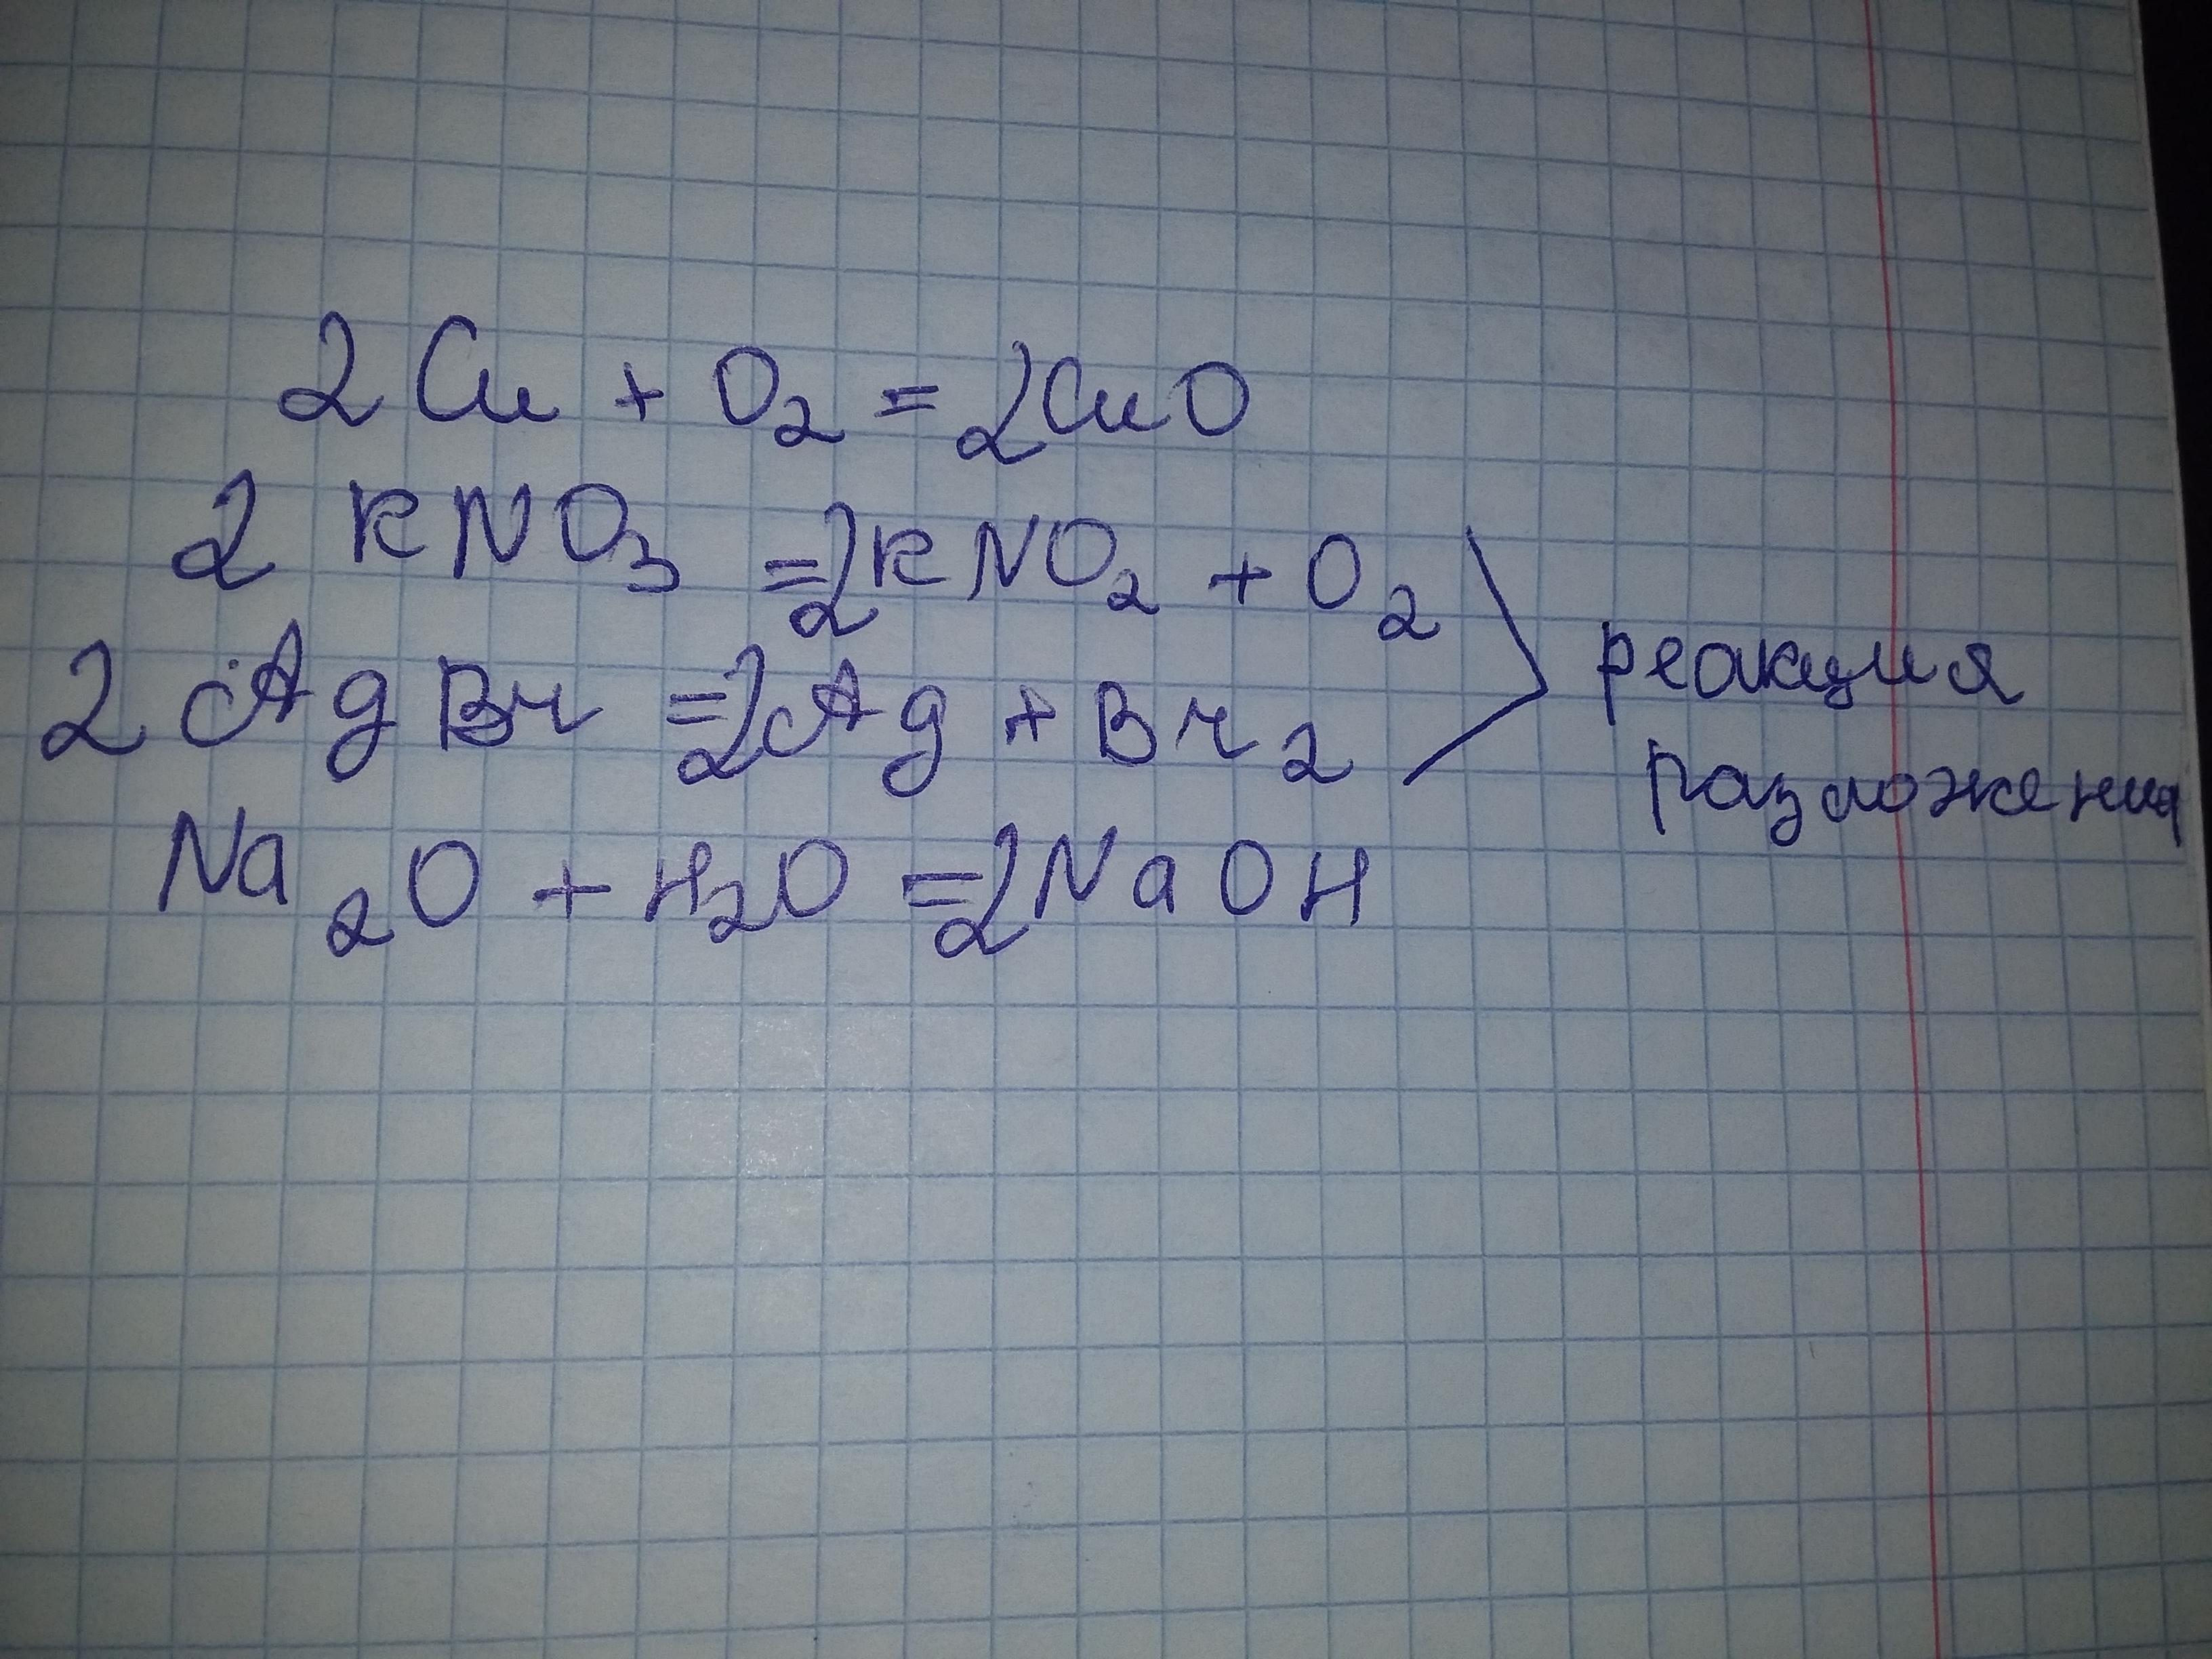 2Cu + O₂ = 2CuO
2 KNO₃ = 2KNO₂ + O₂
2 AgBr = 2Ag + Br₂
реакция
разложения
Na₂O + H₂O = 2NaOH